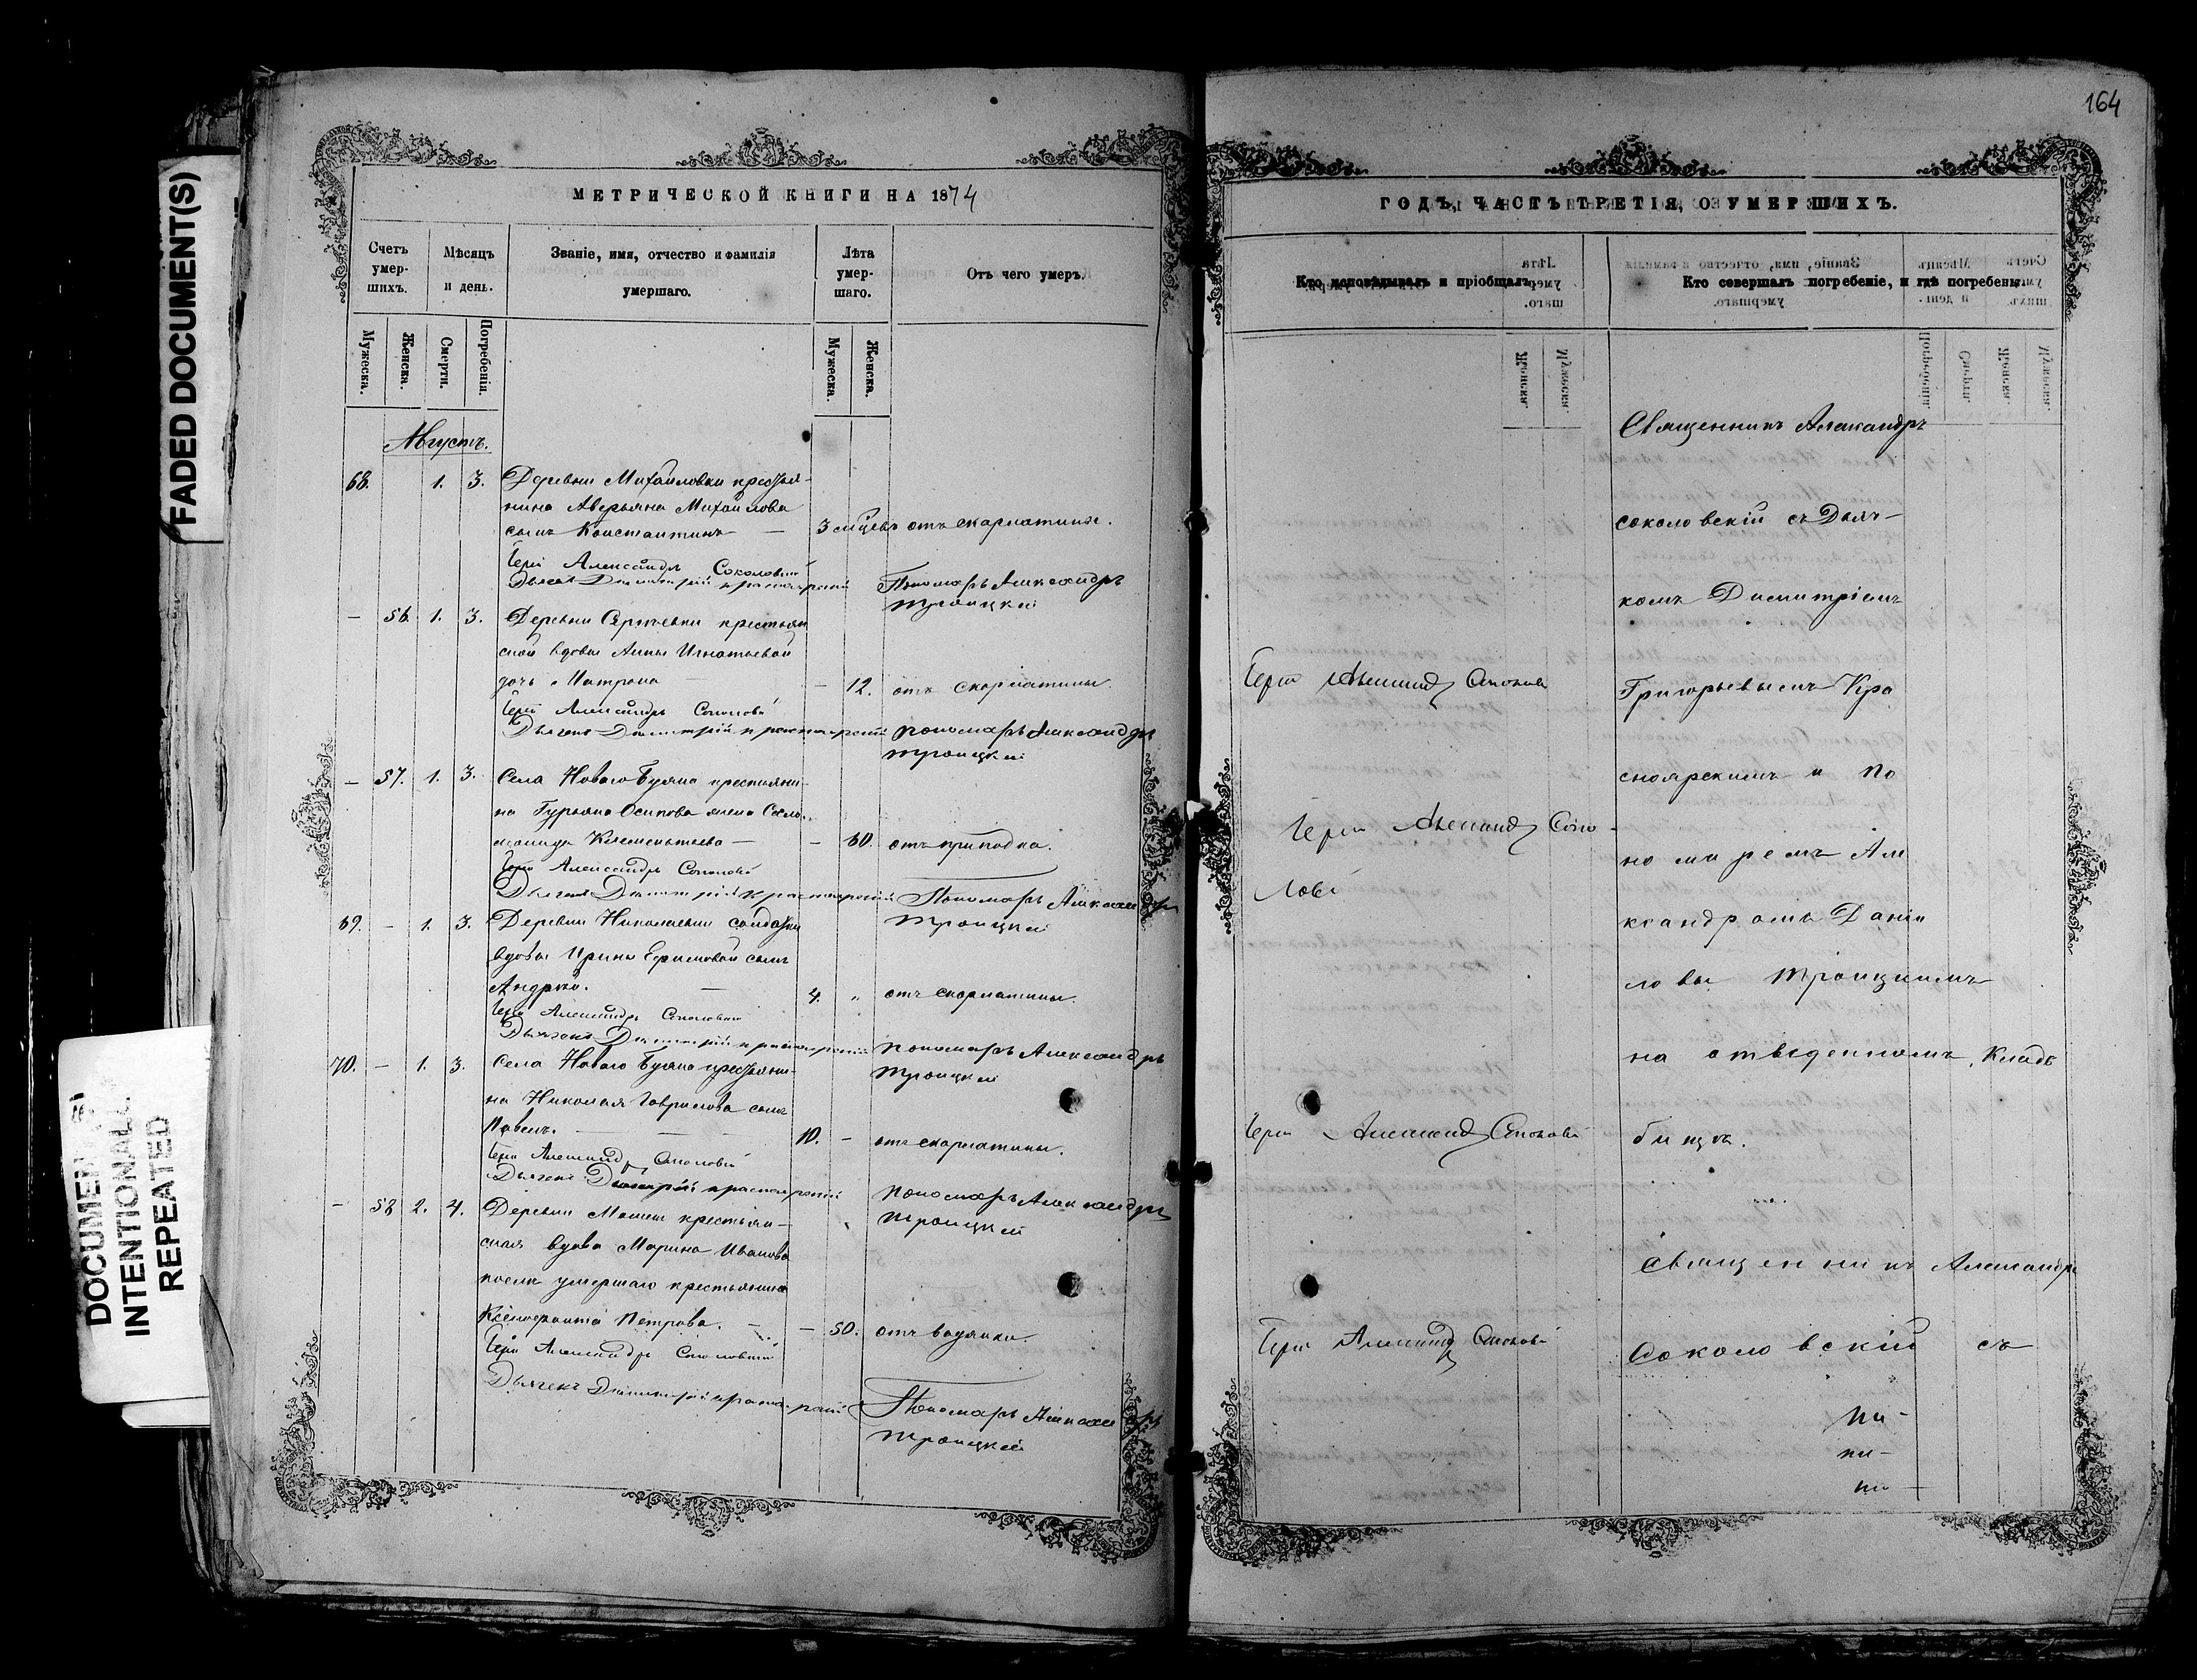 164
FADED DOCUMENT(S)
DOCUMENT(S)
INTENTIONALLY
REPEATED
МЕТРИЧЕСКОЙ КНИГИ НА 1874
Счетъ умер-шихъ.
Мѣсяцъ и день.
Званіе, имя, отчество и фамилія умершаго.
Лѣта умер-шаго.
Отъ чего умеръ.
Мужеска.
Женска.
Смерти.
Погребенія.
Мужеска.
Женска.
Августъ.
68. 1. 3. Деревни Михайловки кресть-
нина Аверьяна Михайлова
сынъ Константинъ — 3 мцевъ отъ скарлатины.
Іерей Александръ Соколовскій
Дьячекъ Димитрій Красноярскій Пономарь Александръ
Троицкій
— 56. 1. 3. Деревни Сергіевки крестьян
ской вдовы Анны Игнатьевой
дочь Матрона — 12. отъ скарлатины.
Іерей Александръ Соколовскій
Дьячекъ Димитрій Красноярскій Пономарь Александръ
Троицкій
— 57. 1. 3. Села Новаго Буяна крестьяни-
на Гурьяна Осипова жена Соло-
монида Клементьева — — 60. отъ припадка.
Іерей Александръ Соколовскій
Дьячекъ Димитрій Красноярскій Пономарь Александръ
Троицкій
69. — 1. 3. Деревни Николаевки солдатки
вдовы Ирины Ефимовой сынъ
Андрей. — 4. „ отъ скарлатины.
Іерей Александръ Соколовскій
Дьячекъ Димитрій Красноярскій Пономарь Александръ
Троицкій
70. — 1. 3. Села Новаго Буяна крестьяни-
на Николая Гаврилова сынъ
Павелъ. — 10. — отъ скарлатины.
Іерей Александръ Соколовскій
Дьячекъ Димитрій Красноярскій Пономарь Александръ
Троицкій
— 58 2. 4. Деревни крестьян-
ская вдова Марина Иванова
послѣ умершаго крестьянина
Ксенофонта Петрова. — — 50. отъ водянки.
Іерей Александръ Соколовскій
Дьячекъ Димитрій Красноярскій Пономарь Александръ
Троицкій
ГОДЪ, ЧАСТЬ ТРЕТІЯ, О УМЕРШИХЪ.
Кто исповѣдывалъ и пріобщалъ.
Кто совершалъ погребеніе, и гдѣ погребены.
Священникъ Александръ
Соколовскій съ Дьяч-
комъ Димитріемъ
Іерей Александръ Соколов
Григорьевымъ Кра
сноярскимъ и По
Іерей Александръ Соко-
номаремъ Але
лові
ксандромъ Дані
ловы Троицкимъ
на отведенномъ Кладъ
Іерей Александръ Соколові
бищѣ.
Священникъ Александръ
Іерей Александръ Соколові
Соколовскій съ
ни-
ни-
ни-